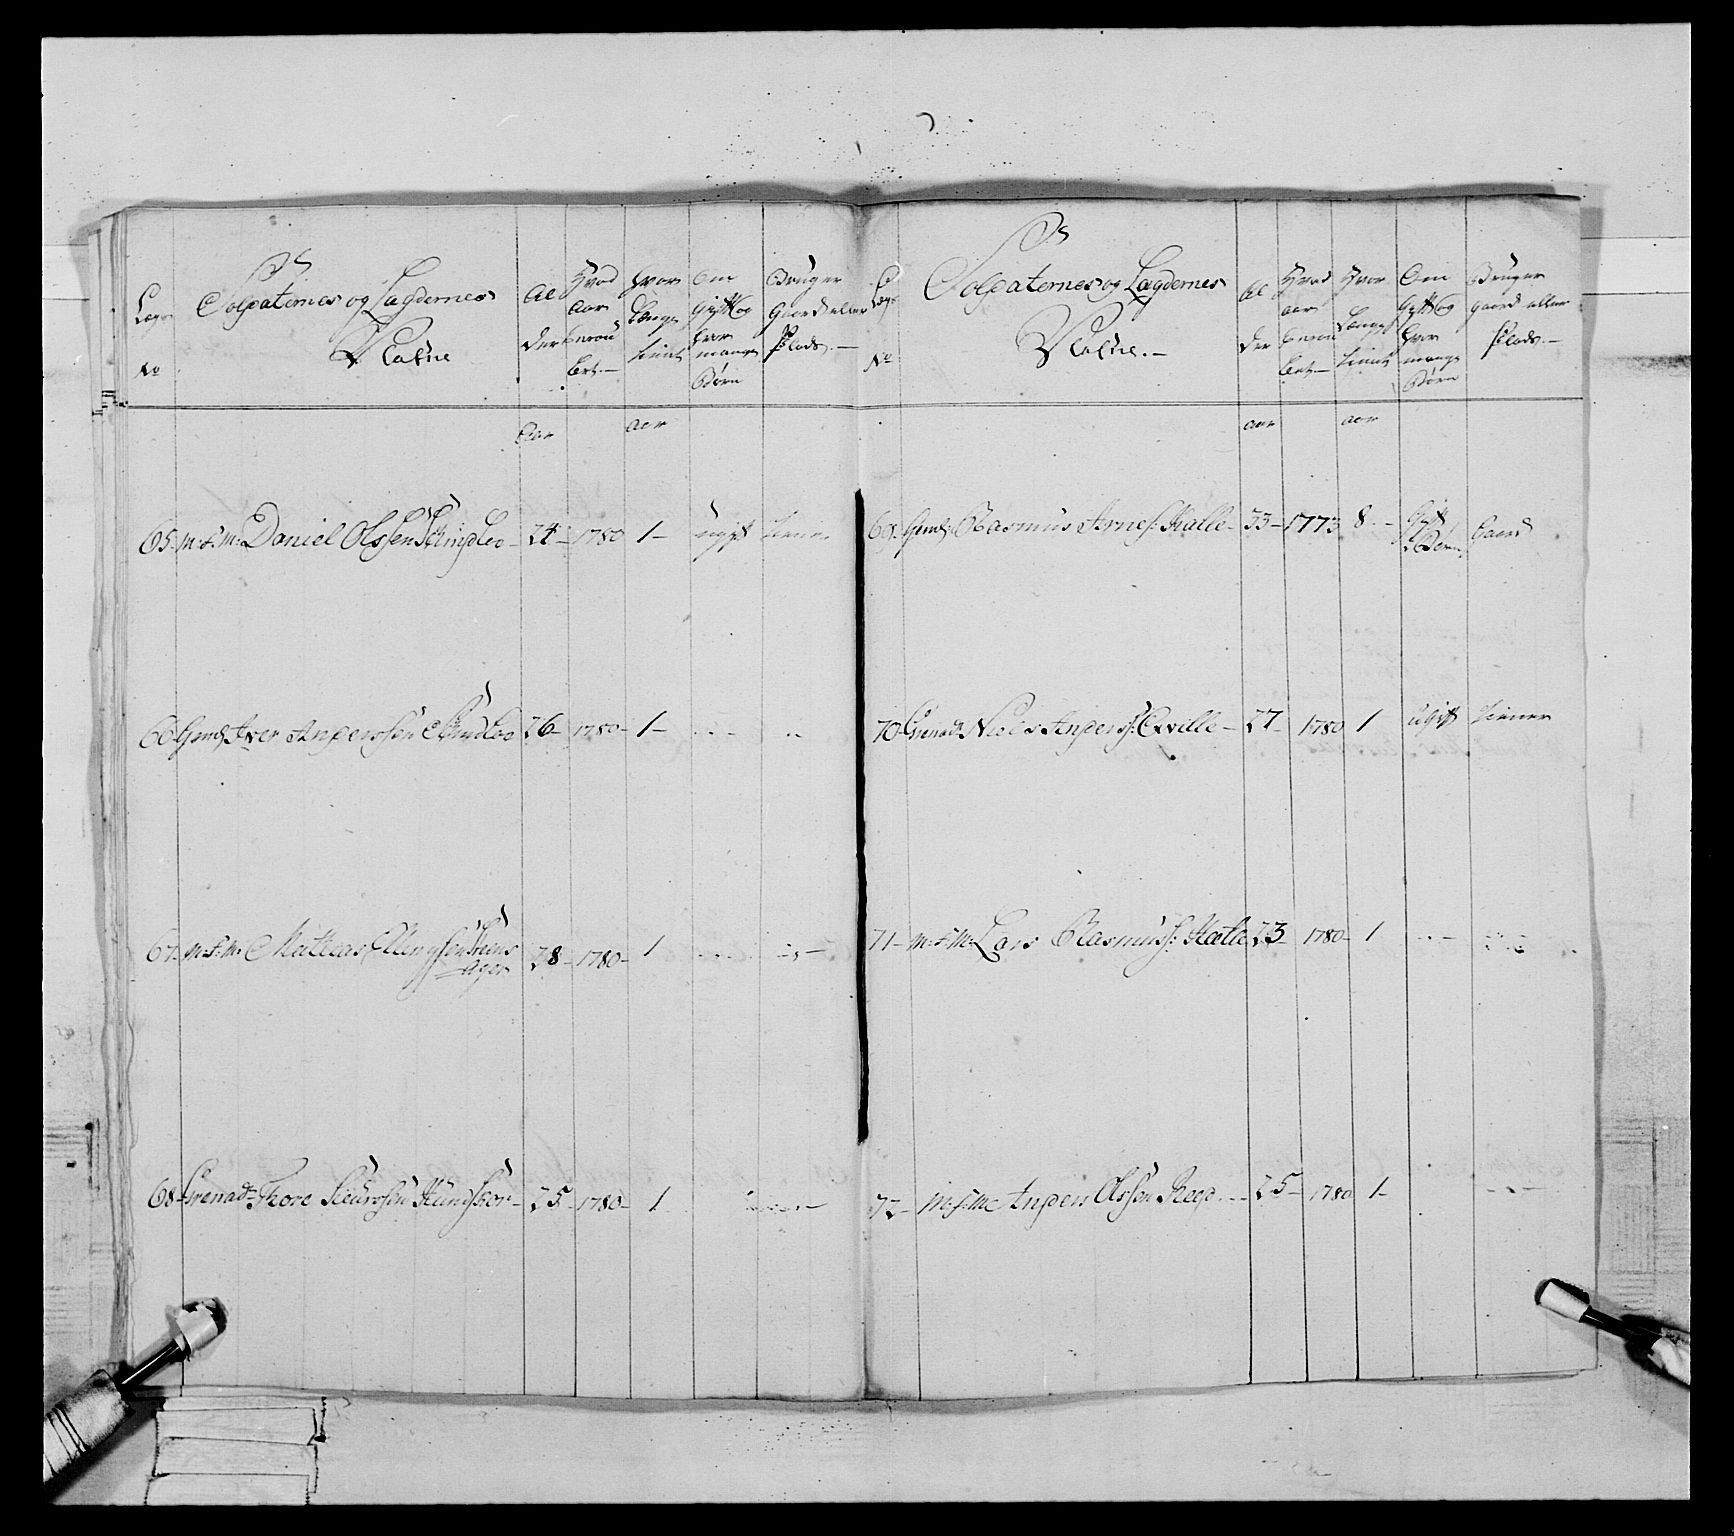 Lægs No
Soldaternes og Lægdernes Nafne
Alder
Hvad Aar enroulert.—
hvor Længe tient
Om Gift og hvor mange Børn
Bruger Gaard eller Plads.—
Aar
aar
65. M.S.M. Daniel Olssen 24- 1780 1- ugift tiener
66 Iver Anderssen 26- 1780- 1-
67. M.S.M. Mattias Steens Ager 28- 1780- 1
68 Grenad: Tore 25- 1780- 1
Lægs No
Soldaternes og Lægdernes Nafne.—
Alder
Hvad aar enroulert.—
Hvor Længe tient
Om Gift og hvor mange Børn
Bruger gaard eller Plads.—
aar
aar
69. Rasmus Arnes: Halle- 33- 1773 8.- Gift Børn Gaard
70- Grenad: Niels Anders: Qville- 27- 1780 1 ugift tiener
71- M:S:M: Lars Rasmus: Halle 23- 1780- 1
72- M:S:M: Anders Olssen 25- 1780 1-